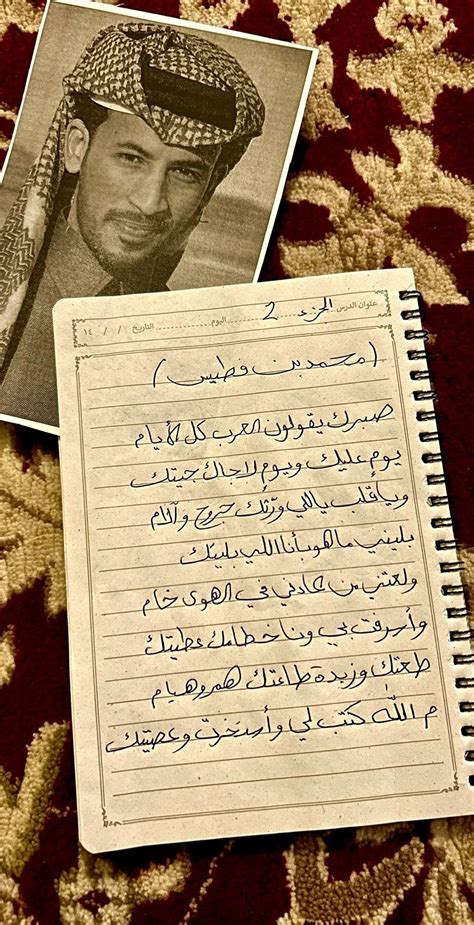 عنوان الدرس الجزء 2 اليوم التاريخ / / ١٤
(محمد بن فطيس)
صبرك يقولون العرب كل الأيام
يوم عليك ويوم لاجالك جيتك
ويا قلب ياللي ورثك جروح وآلام
بليتني ما هو بأنا اللي بليتك
ولعتني من عادني في الهوى خام
وأسرفت بي ونا خطامك عطيتك
طعتك وزبدة طاعتك هم وهيام
م الله كتب لي وأستخرت وعصيتك